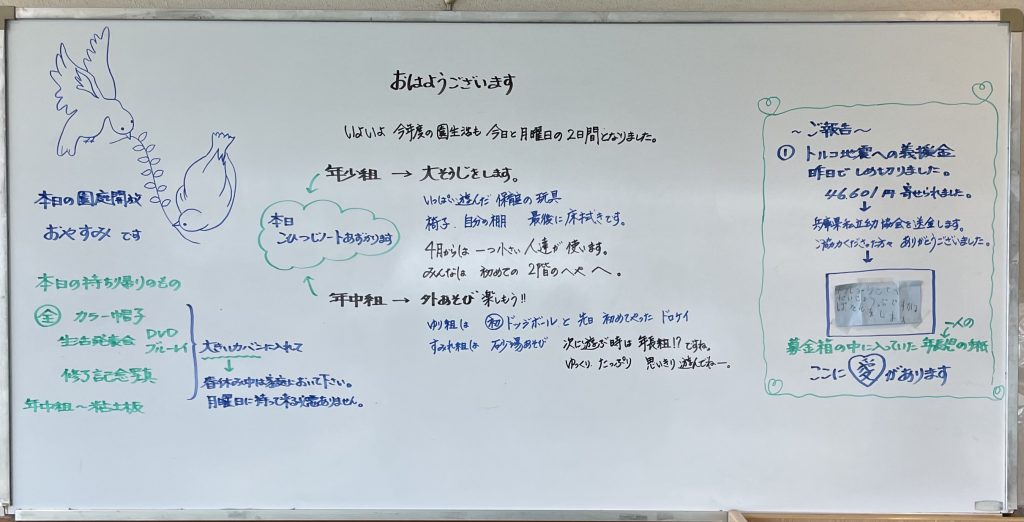 おはようございます
いよいよ 今年度の園生活も 今日と月曜日の2日間となりました。
本日の園庭開放
おやすみ です
本日の持ち帰りのもの
全 カラー帽子
生活発表会 DVD ブルーレイ
修了記念写真
年中組〜粘土板
大きいカバーに入れて
春休み中は家庭において下さい。
月曜日に持って来る必要ありません。
年少組 → 大そうじをします。
いっぱい遊んだ 保育室の玩具
椅子、自分の棚 最後に床拭きです。
4月からは 一つ小さい人達が使います。
みんなは 初めての 2階のへや へ。
本日
こひつじノートあずかります
年中組 → 外あそび 楽しもう!!
ゆり組は 初 ドッジボール と 先日 初めてやった ドロケイ
すみれ組は 砂場あそび 次に遊ぶ時は 年長組!?ですね。
ゆっくり たっぷり 思いきり 遊んでねー。
〜ご報告〜
① トルコ地震への義援金
昨日で しめ切りました。
46,601円 寄せられました。
兵庫県私立幼 協会を送金します。
ご協力くださった方々 ありがとうございました。
一人の
募金箱の中に入っていた 年長児の手紙
ここに 愛 があります